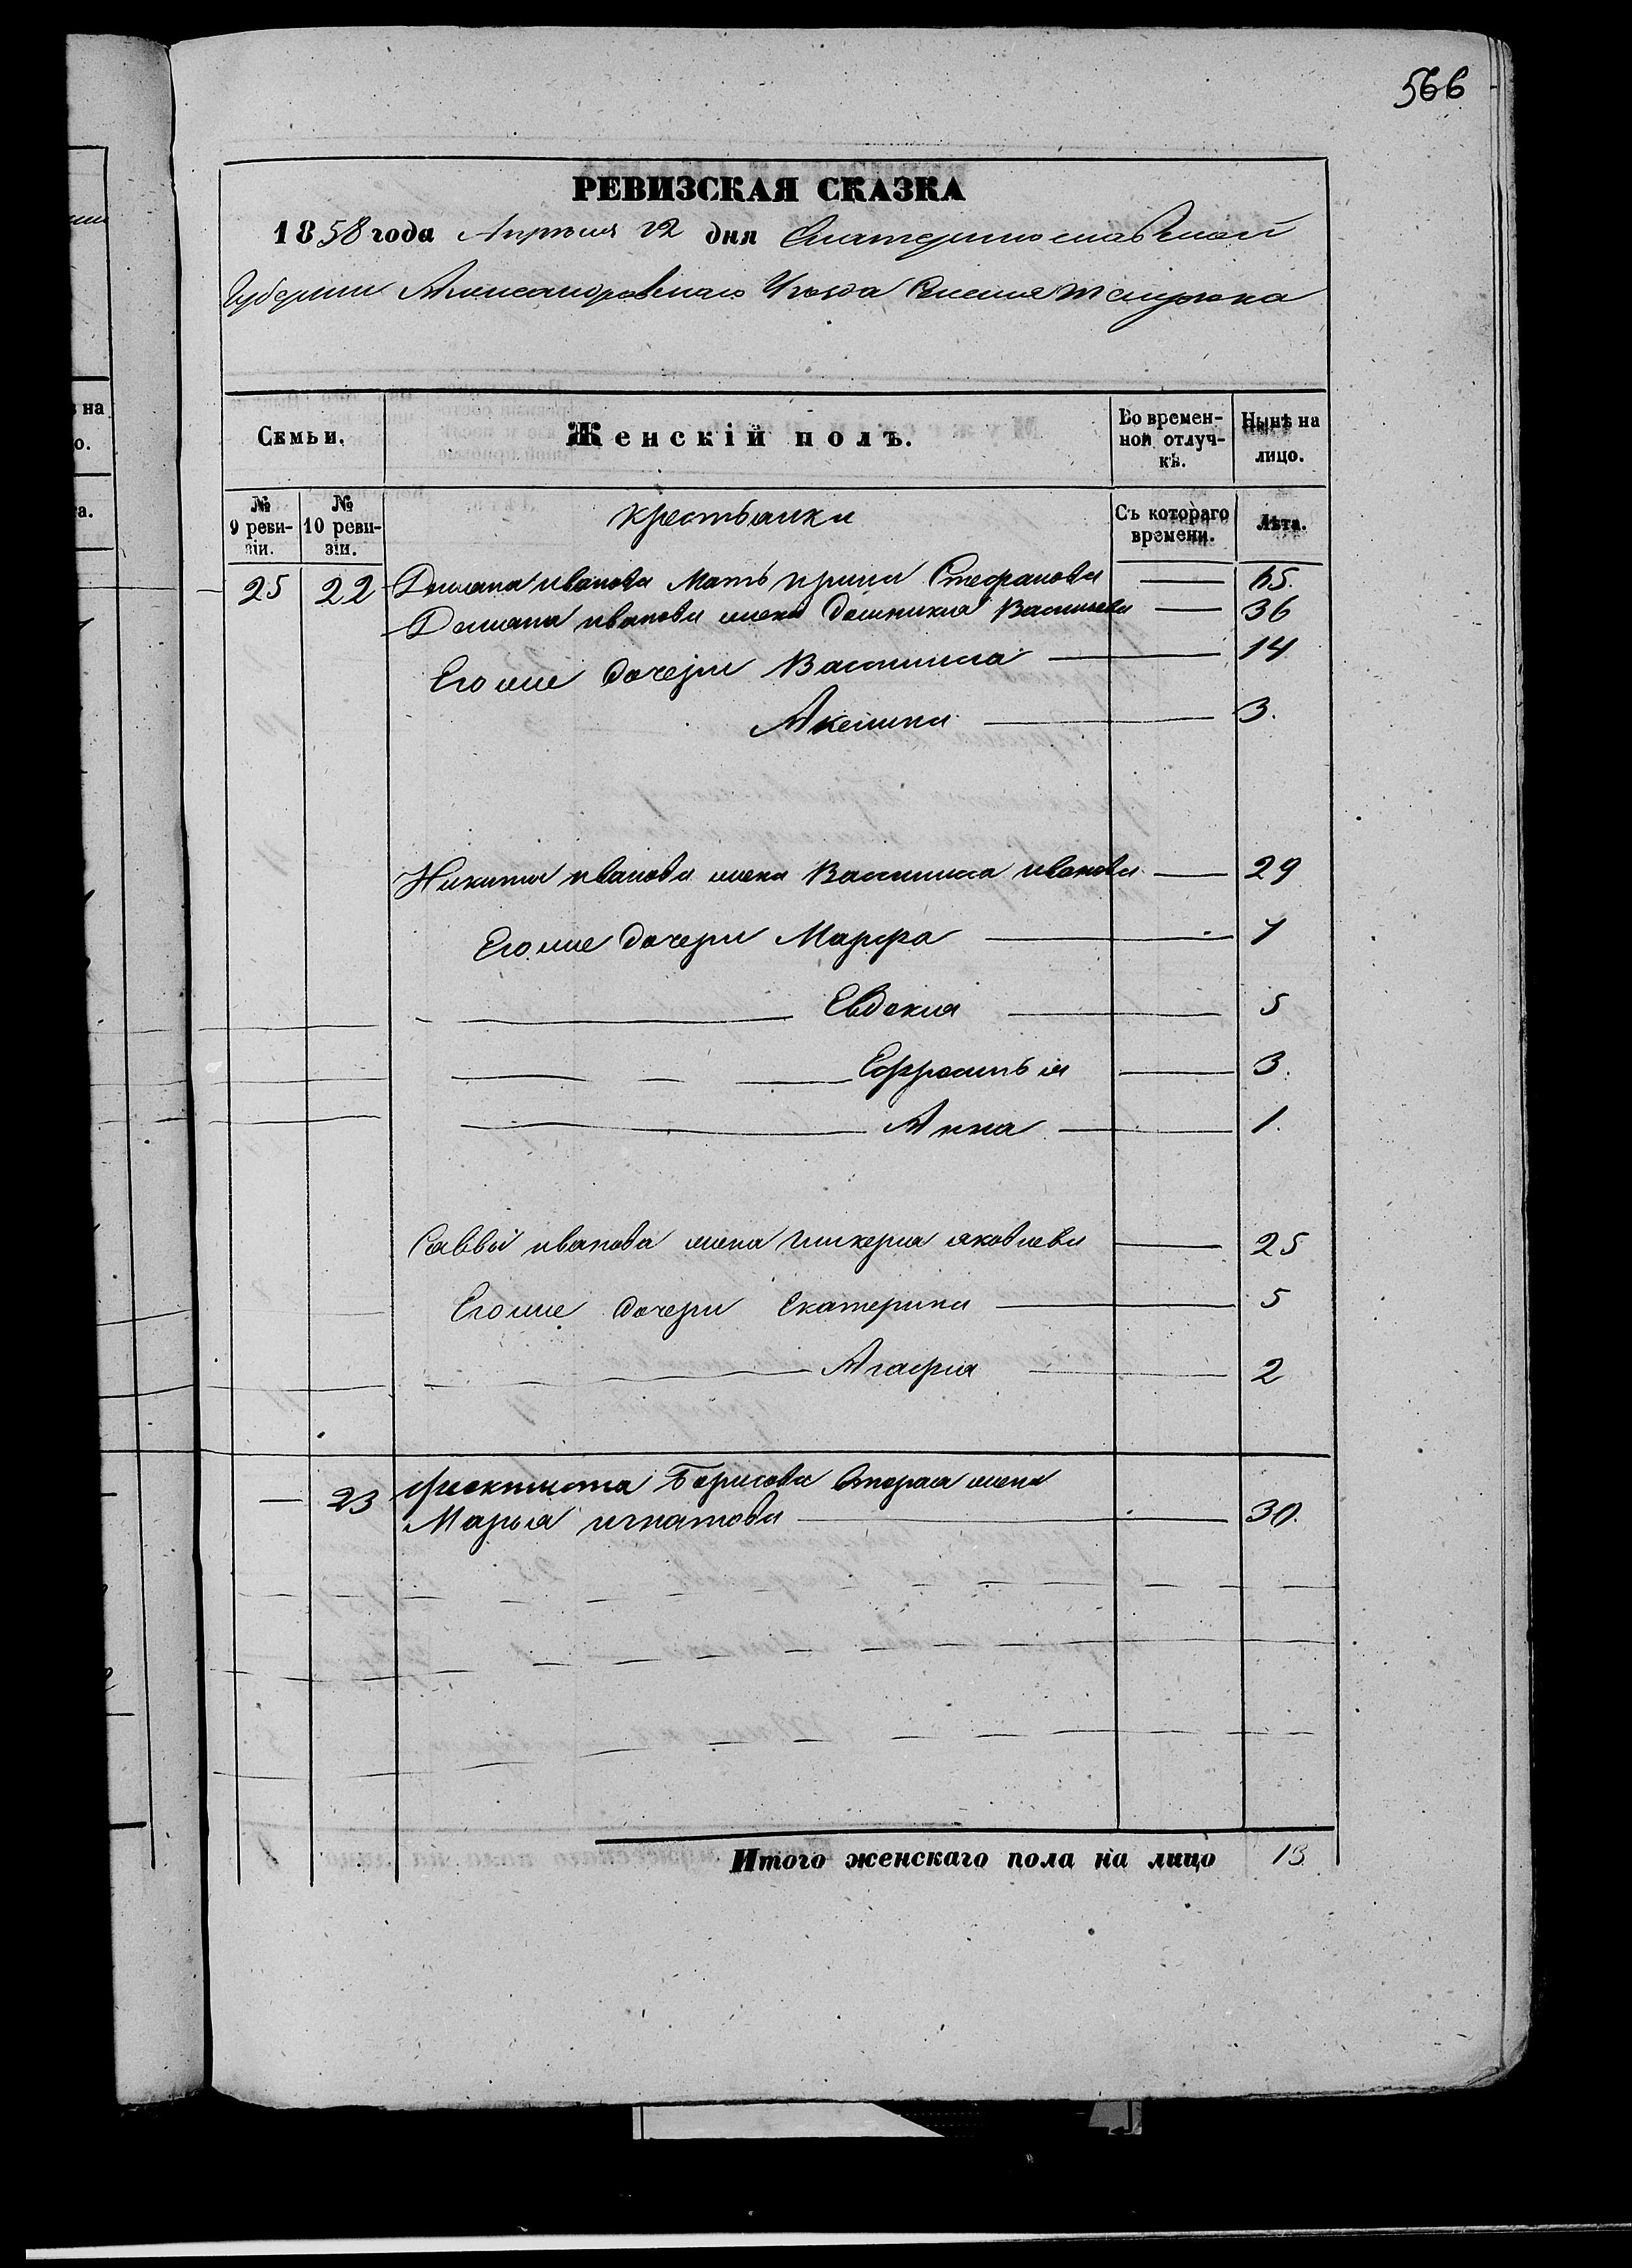 566
РЕВИЗСКАЯ СКАЗКА
1858 года Апреля 22 дня Екатеринославской
Губернии Александровскаго Уезда Селения
Семьи. Женскій полъ. Во временной отлучкѣ. Нынѣ на лицо.
№ 9 ревизіи. № 10 ревизіи. крестьянки Съ котораго времени. Лѣта.
25 22 Демяна иванова Мать ирина Стефанова 65.
Демяна иванова жена домникия Васильева 36
Его же дочери Василиса 14
Акелина 3.
Никиты иванова жена Василиса иванова 29
Его же дочери Марфа 7
Евдокия 5
Ефросинья 3.
Анна 1.
Саввы иванова жена гликерия яковлева 25
Его же дочери Екатерина 5
Агафия 2
23 Феоктиста Борисова вторая жена
Марья игнатова 30.
Итого женскаго пола на лицо 13
на
о.
а.